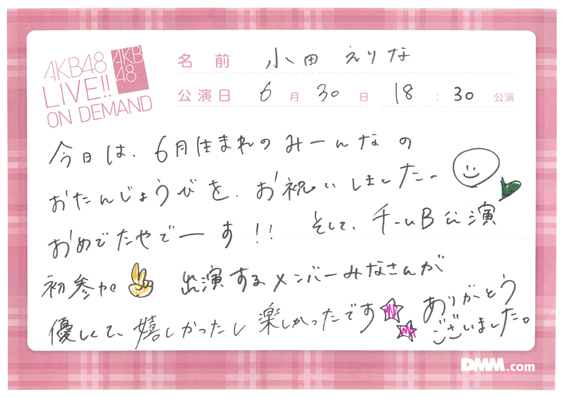 AKB48
LIVE!!
ON DEMAND
AKB
48
名前 小田えりな
公演日 6月30日 18:30公演
今日は、6月生まれのみーんなの
おたんじょうびを、お祝いしましたー
おめでたやでーす!! そして、チームB公演
初参加 出演するメンバーみなさんが
優しくて、嬉しかったし楽しかったです
ありがとう
ございました。
DMM.com